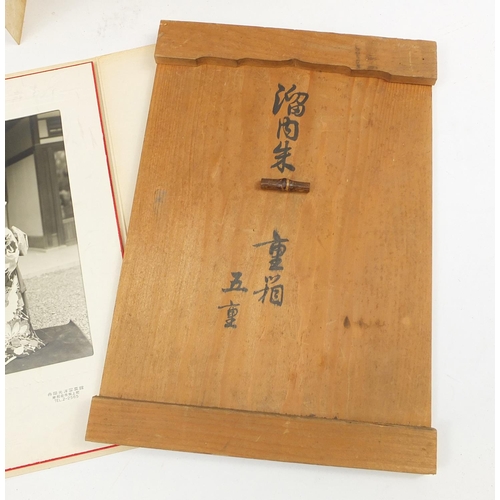 溜内朱
重箱
五重